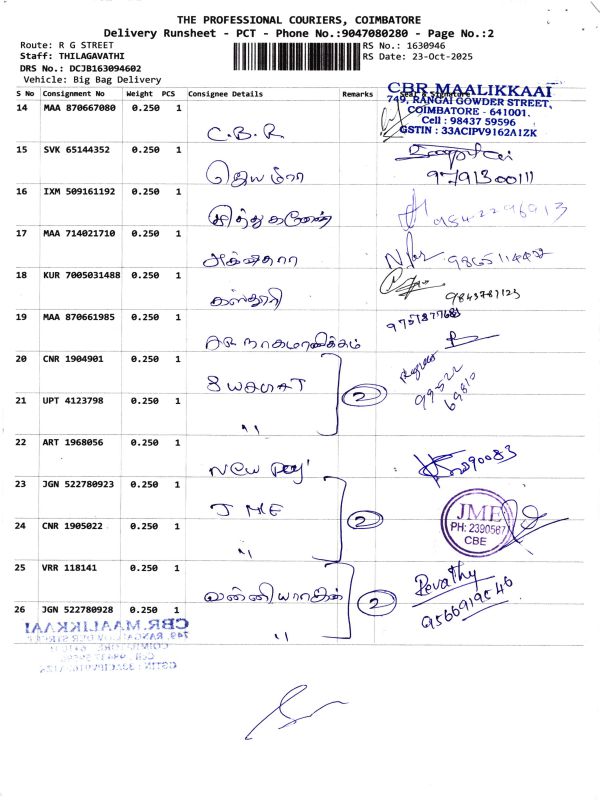 THE PROFESSIONAL COURIERS, COIMBATORE
Delivery Runsheet - PCT - Phone No.:9047080280 - Page No.:2
Route: R G STREET
RS No.: 1630946
Staff: THILAGAVATHI
RS Date: 23-Oct-2025
DRS No.: DCJB163094602
Vehicle: Big Bag Delivery
S No Consignment No Weight PCS Consignee Details Remarks
CBR.MAALIKKAAI
749, RANGAI GOWDER STREET,
COIMBATORE - 641001.
Cell : 98437 59596
GSTIN : 33ACIPV9162A1ZK
14 MAA 870667080 0.250 1
C.B.R
15 SVK 65144352 0.250 1
ஜெயமீரா
9791300111
16 IXM 509161192 0.250 1
17 MAA 714021710 0.250 1
18 KUR 7005031488 0.250 1
கஸ்தூரி
9843787123
19 MAA 870661985 0.250 1
நாகமாணிக்கம்
20 CNR 1904901 0.250 1
2
99522
69810
21 UPT 4123798 0.250 1
"
22 ART 1968056 0.250 1
New
23 JGN 522780923 0.250 1
JME
2
JME
PH: 2390587
CBE
24 CNR 1905022 0.250 1
"
25 VRR 118141 0.250 1
2
Revathy
9566919546
26 JGN 522780928 0.250 1
"
CBR.MAALIKKAAI